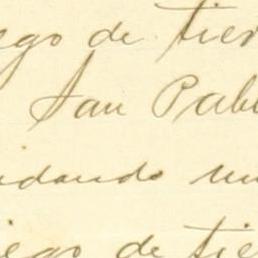 ego de tier
San Pabl
idando un
iego de tie